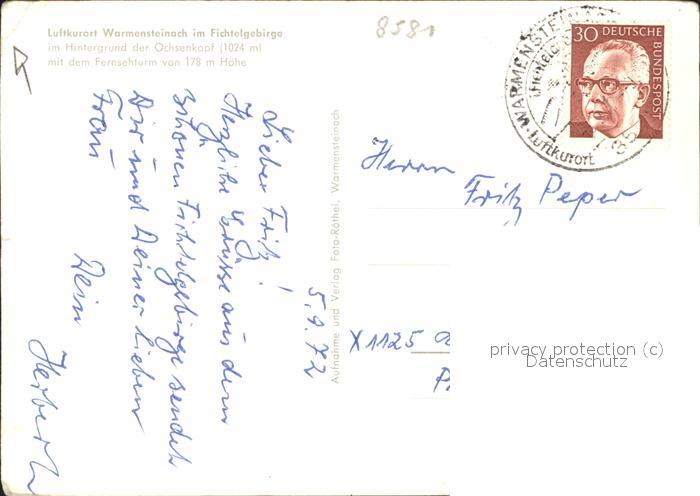 Luftkurort Warmensteinach im Fichtelgebirge
im Hintergrund der Ochsenkopf (1024 m)
mit dem Fernsehturm von 178 m Höhe
8581
Lieber Fritz!
Herzliche Grüsse aus dem
schönen Fichtelgebirge sendet
Dir und Deiner lieben
Frau
Dein
Herbert
5.9.72
Aufnahme und Verlag Foto-Röthel, Warmensteinach
WARMENSTEINACH
Luftkurort
85
30 DEUTSCHE
BUNDESPOST
Herrn
Fritz Peper
X1125
privacy protection (c)
Datenschutz